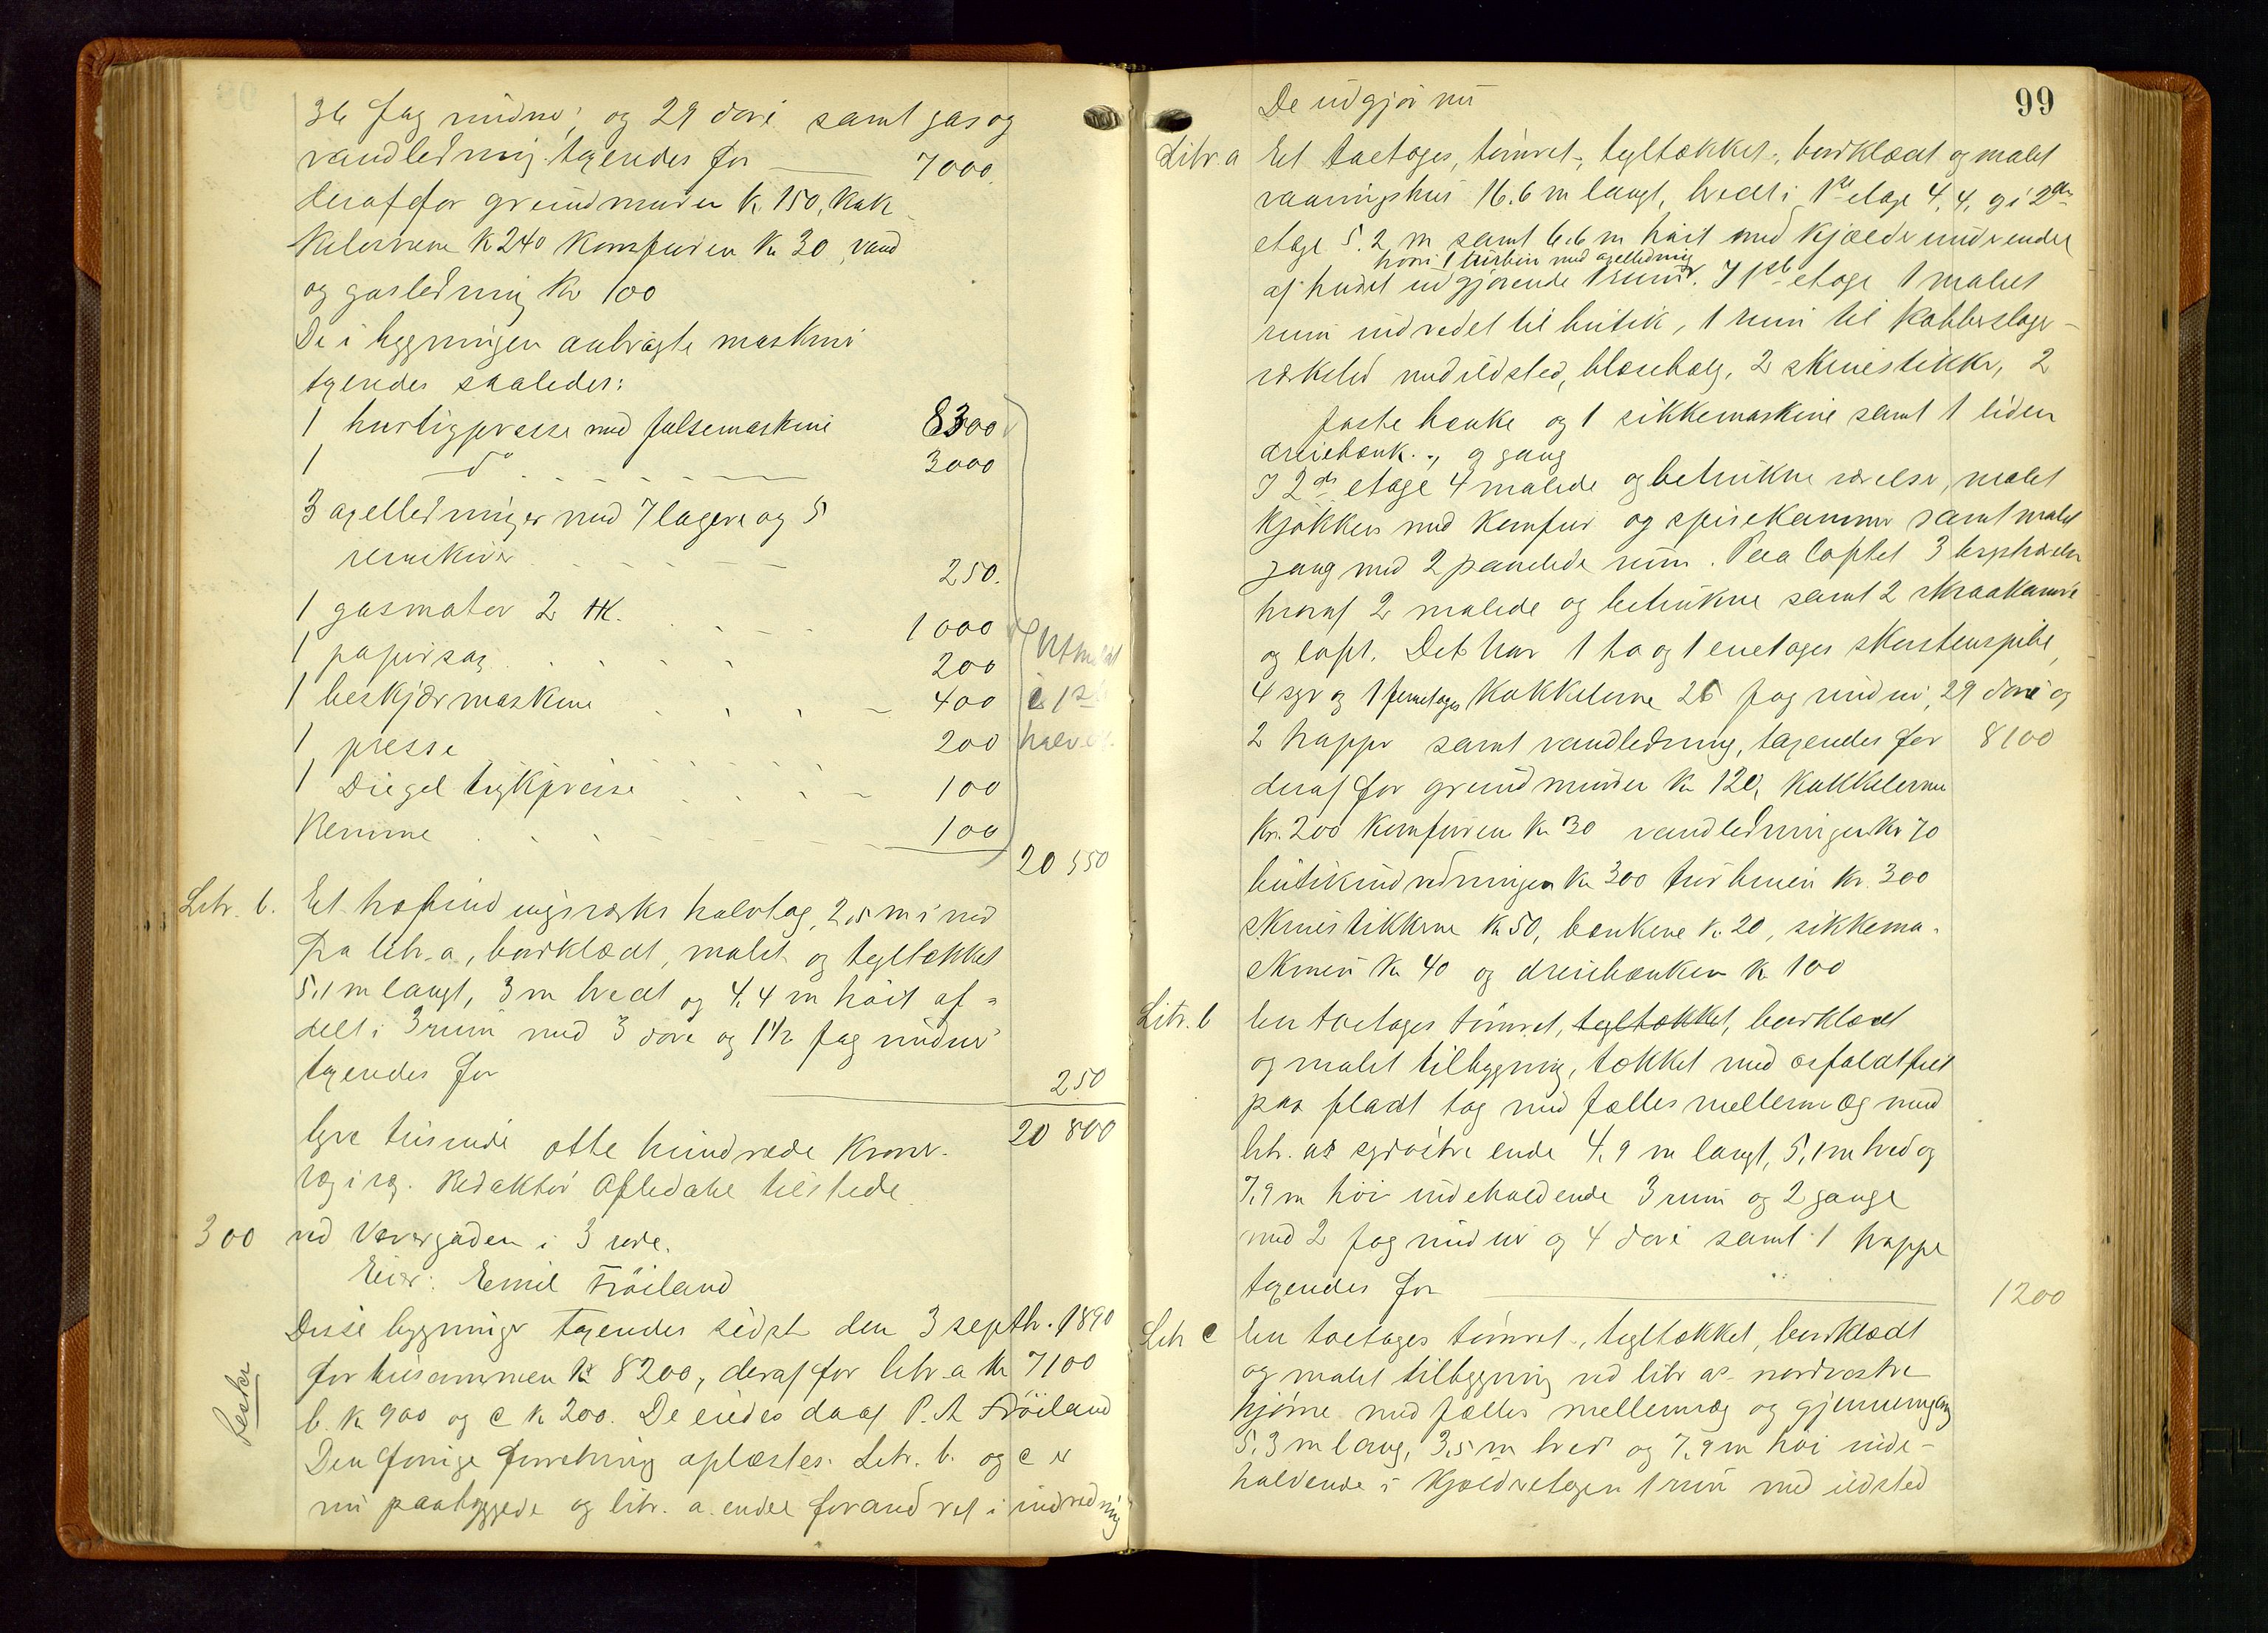 36 fag vinduer og 29 døre samt gas og
vandledning taxeredes for 7000.
deraf for grundmuren Kr. 150, kak
kelovnene Kr 240 komfuren Kr 30, vand
og gasledning Kr 100
De i bygningen anbragte maskiner
taxeredes saaledes:
1 hurtigpresse med falsemaskine 8300
1 do 3000
3 axelledninger med 7 lagere og 5
remskiver 250.
1 gasmotor 2 HK. 1000
1 papirsax 200
1 beskjærmaskine 400
1 presse 200
1 Diegel trykpresse 100
Remme 100
Utmeldt
i 1st
halvaar
20 550
Litr. b. Et hosbindingsværks halvtag, 2,5 m i ned
fra litr. a, bordklædt, malet og tegltækket
5,1 m langt, 3 m bredt og 4,4 m høit af=
delt i 3 rum med 3 døre og 1 1/2 fag vinduer
taxeredes for 250
tyve tusinde otte hundrede Kroner. 20 800
Redaktør Afledahl tilstede.
300 ved Vævergaden i 3 rode.
Eier: Emil Frøiland
Disse bygninger taxeredes sidst den 3 septbr. 1890
for tilsammen Kr 8200, deraf for litr. a Kr 7100
b. Kr 900 og c Kr 200. De eiedes da af P. A. Frøiland
Den forrige forretning oplæstes. Litr. b. og c er
nu paabyggede og litr. a. endel forandret i indredning
99
De udgjør nu
Litr. a Et toetages, tømret-, tegltækket-, bordklædt og malet
vaaningshus 16.6 m langt, bredt i 1ste etage 4,4, og i 2den
etage 5.2 m samt 6.6 m høit med kjælder under endel
hvori 1 turbin med axelledning
af huset udgjørende 1 rum. I 1ste etage 1 malet
rum indredet til butik, 1 rum til kobberslager-
værksted med ildsted, blæsebælg, 2 skruestikker, 2
faste bænke og 1 sikkemaskine samt 1 liden
dreiebænk., og gang
I 2den etage 4 malede og betrukne værelser, malet
kjøkken med komfur og spisekammer samt malet
gang med 2 panelede rum. Paa loftet 3
hvoraf 2 malede og betrukne samt 2 skraakamre
og loft. Det har 1 to og 1 enetages skorstenspibe,
4 syv og 1 femetages kakkelovne 26 fag vinduer, 29 døre og
2 trapper samt vandledning, taxeredes for 8100
deraf for grundmuren Kr 120, kakkelovnene
Kr. 200 komfuren Kr 30 vandledningen Kr 70
butikindredningen Kr 300 turbinen Kr. 300
skruestikkerne Kr 50, bænkene Kr. 20, sikkema-
skinen Kr 40 og dreiebænken Kr 100
Litr. b En toetages tømret, tegltækket, bordklædt
og malet tilbygning, tækket med asfaldtfilt
paa fladt tag med fælles mellemvæg med
litr. as sydøstre ende 4,9 m langt, 5,1 m bred og
7,9 m høi indeholdende 3 rum og 2 gange
med 2 fag vinduer og 4 døre samt 1 trappe
taxeredes for 1200
Litr c En toetages tømret-, tegltækket, bordklædt
og malet tilbygning ved litr as nordvestre
hjørne med fælles mellemvæg og gjennemgang
5,3 m lang, 3,5 m bred og 7,9 m høi inde-
holdende i kjælderetagen 1 rum med ildsted